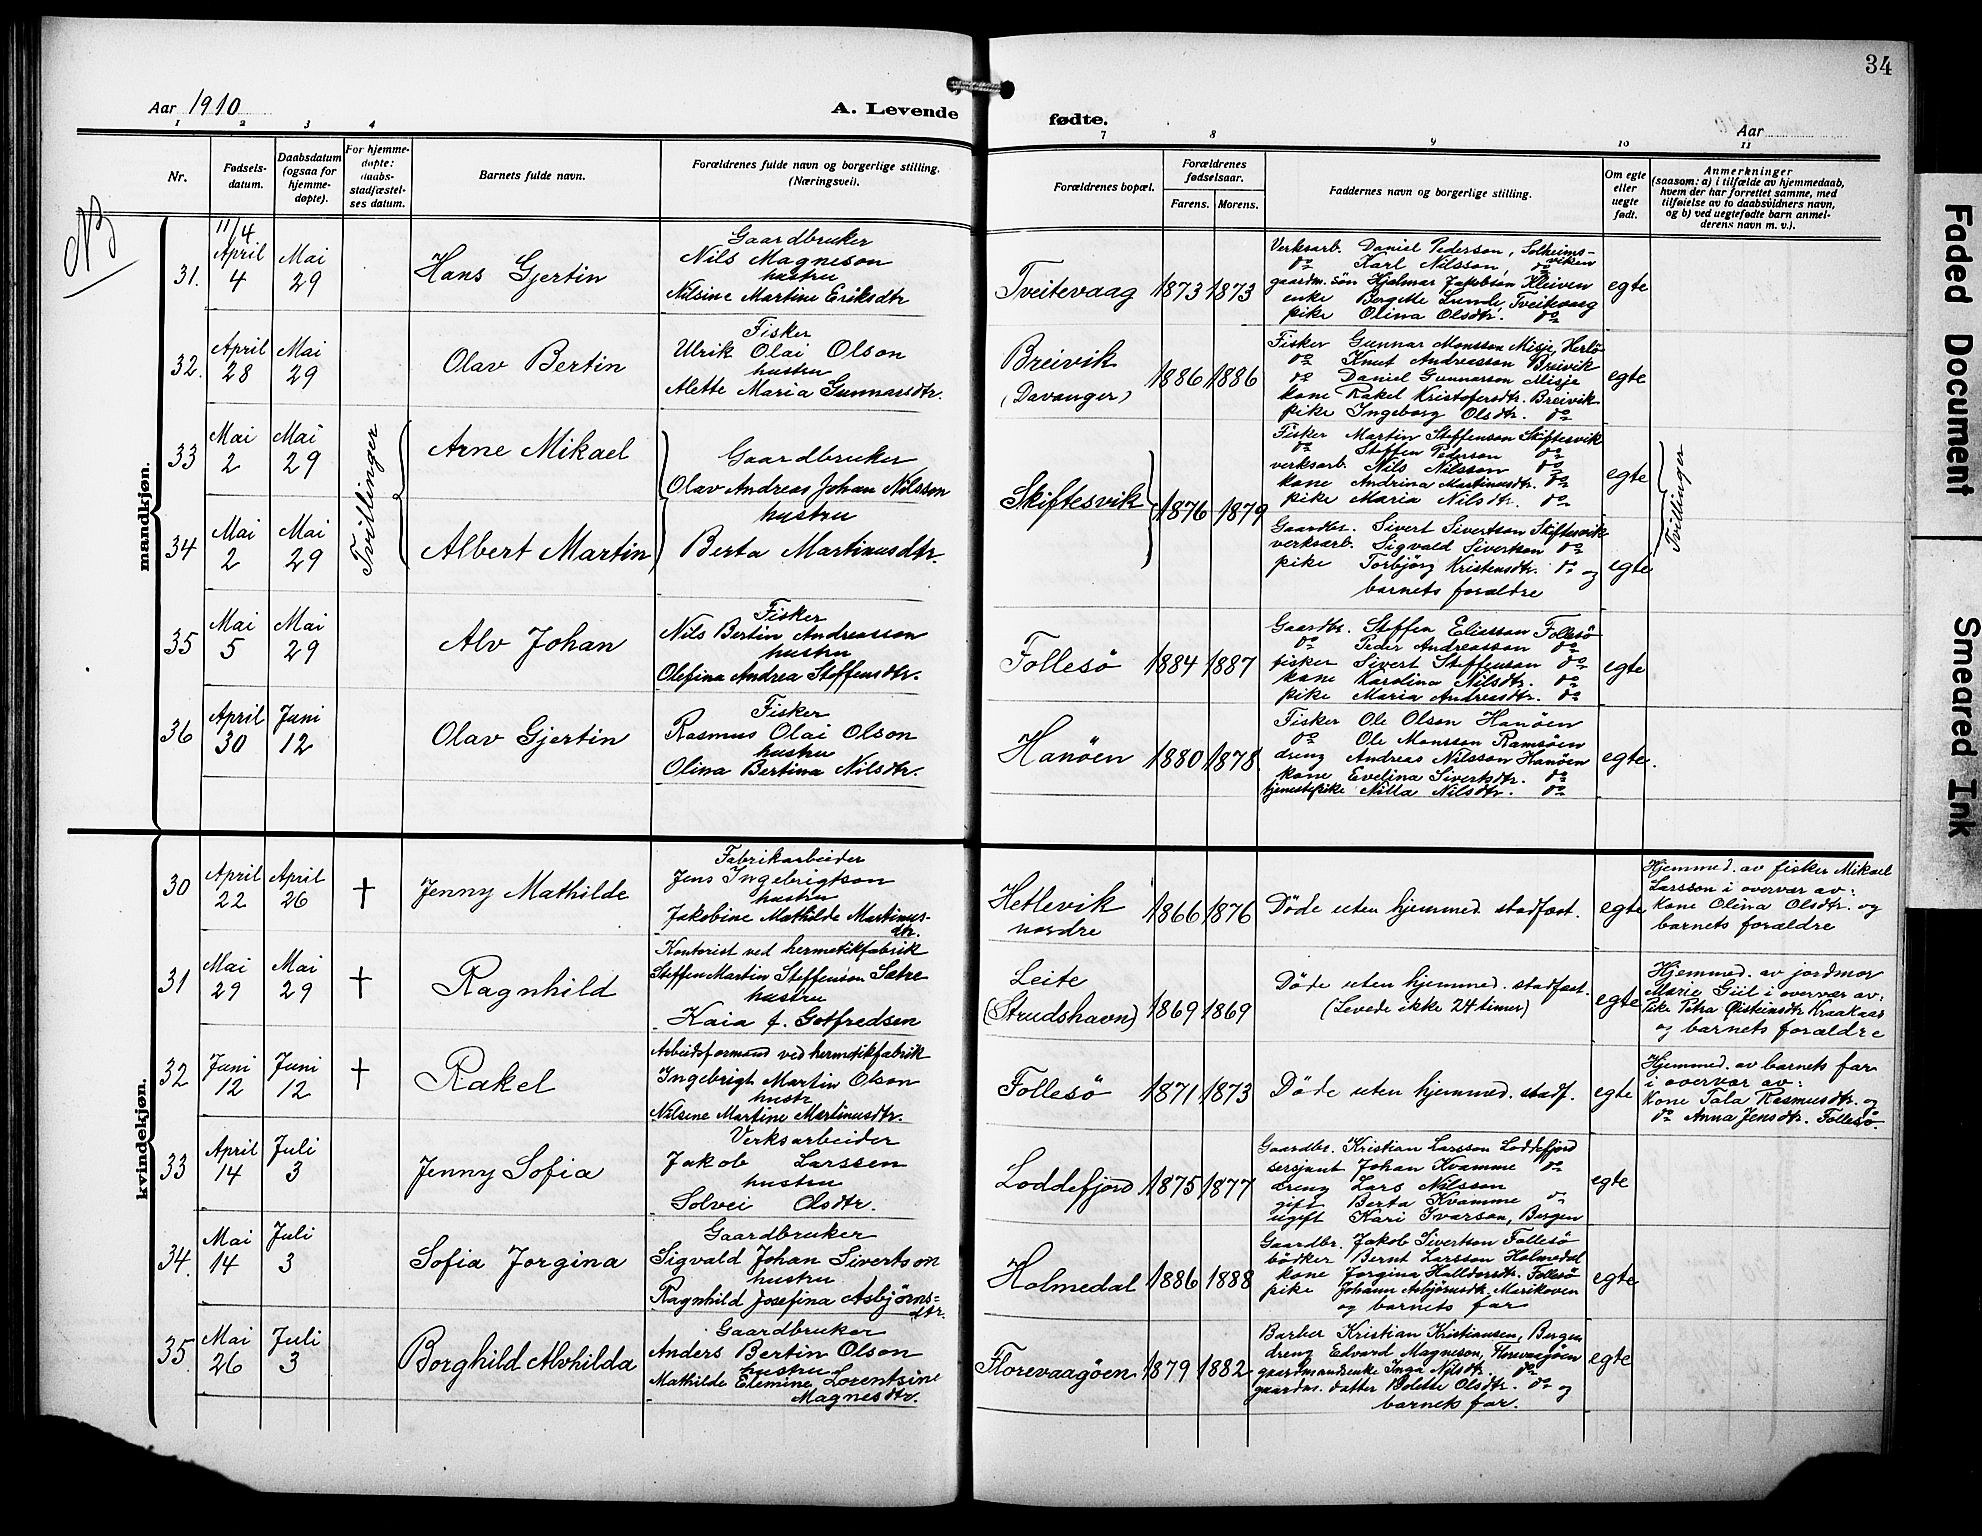 34
Aar 1910
A. Levende
fødte.
Aar
1 2 3 4
7 8 9 10 11
Nr.
Fødsels-
datum.
Daabsdatum
(ogsaa for
hjemme-
døpte).
For hjemme-
døpte:
daabs-
stadfæstel-
ses datum.
Barnets fulde navn.
Forældrenes fulde navn og borgerlige stilling.
(Næringsvei).
Forældrenes bopæl.
Forældrenes
fødselsaar.
Farens. Morens.
Faddernes navn og borgerlige stilling.
Om egte
eller
uegte
født.
Anmerkninger
(saasom: a) i tilfælde av hjemmedaab,
hvem der har forrettet samme, med
tilføielse av to daabsvidners navn,
og b) ved uegtefødte barn anmel-
derens navn m. v.).
NB
mandkjøn.
11/4
31. April 4 Mai 29
Hans Gjertin
Gaardbruker
Nils Magneson
hustru
Nilsine Martine Eriksdtr
Tveitevaag 1873 1873
Verksarb. Daniel Pederson, Solheims-
viken
do Karl Nilsson, do
gaardm. søn Hjalmar Jakobson Kleiven
enke Bergitte Lunde, Tveitevaag
pike Olina Olsdtr. do
egte
32. April 28 Mai 29
Olav Bertin
Fisker
Ulrik Olai Olson
hustru
Alette Maria Gunnarsdtr.
Breivik
(Davanger)
1886 1886
Fisker Gunnar Monsson Misje, Herlø
do Knut Andreasson Breivik
do Daniel Gunnarson Misje
kone Rakel Kristofersdtr. Breivik
pike Ingeborg Olsdtr. do
egte
33 Mai 2 Mai 29
Tvillinger
Arne Mikael
Gaardbruker
Olav Andreas Johan Nilsson
hustru
Berta Martinusdtr.
Skiftesvik 1876 1879
Fisker Martin Steffenson Skiftesvik
do Steffen Pederson do
verksarb. Nils Nilsson do
kone Andrina Martinusdtr. do
pike Maria Nilsdtr. do
egte
Tvillinger
34 Mai 2 Mai 29
Albert Martin
Gaardbr. Sivert Sivertson Skiftesvik
verksarb. Sigvald Sivertson do
pike Torbjørg Kristensdtr. do og
barnets forældre
egte
35 Mai 5 Mai 29
Alv Johan
Fisker
Nils Bertin Andreasson
hustru
Olefina Andrea Steffensdtr.
Follesö 1884 1887
Gaardbr. Steffen Eliasson Follesö
do Peder Andreasson do
fisker Sivert Steffenson do
kone Karolina Nilsdtr. do
pike Maria Andreasdtr. do
egte
36 April 30 Juni 12
Olav Gjertin
Fisker
Rasmus Olai Olson
hustru
Olina Bertina Nilsdtr.
Hanöen 1880 1878
Fisker Ole Olson Hanöen
do Ole Monsson Ramsöen
dreng Andreas Nilsson Hanöen
kone Evelina Sivertsdtr. do
tjenestepike Nilla Nilsdtr. do
egte.
kvindekjøn.
30 April 22 April 26 †
Jenny Mathilde
Fabrikarbeider
Jens Ingebrigtson
hustru
Jakobine Mathilde Martinus-
dtr.
Hetlevik
nordre
1866 1876
Døde uten hjemmed. stadfæst.
egte
Hjemmed. av fisker Mikael
Larsson i overvær av:
Kone Olina Olsdtr. og
barnets forældre
31 Mai 29 Mai 29 †
Ragnhild
Kontorist ved hermetikfabrik
Steffen Martin Steffenson Sætre
hustru
Kaia f. Gotfredsen
Leite
(Strudshavn)
1869 1869
Døde uten hjemmed. stadfæst.
(Levede ikke 24 timer)
egte
Hjemmed. av jordmor
Marie Giil i overvær av:
Pike Petra Øisteinsdtr Kraakaas
og barnets forældre
32 Juni 12 Juni 12 †
Rakel
Arbeidsformand ved hermetikfabrik
Ingebrigt Martin Olson
hustr
Nilsine Martine Martinusdtr.
Follesö 1871 1873
Døde uten hjemmed. stadf.
egte
Hjemmed. av barnets far
i overvær av:
Kone Tala Rasmusdtr. og
do Anna Jensdtr. Follesö.
33 April 14 Juli 3
Jenny Sofia
Verksarbeider
Jakob Larssen
hustru
Solvei Olsdtr.
Loddefjord 1875 1877
Gaardbr. Kristian Larsson Loddefjord
sersjant Johan Kvamme do
dreng Lars Nilsson
gift Berta Kvamme do
ugift Kari Ivarson, Bergen
egte
34. Mai 14 Juli 3
Sofia Jorgina
Gaardbruker
Sigvald Johan Sivertson
hustru
Ragnhild Josefina Asbjørns-
dtr.
Holmedal 1886 1888
Gaardbr. Jakob Sivertson Follesö
bödker Bernt Larsson Holmedal
kone Jorgina Halldorsdtr. Follesö
pike Johann Asbjörnsdtr. Marikoven
og barnets far
egte
35. Mai 26 Juli 3
Borghild Alvhilda
Gaardbruker
Anders Bertin Olson
hustru
Mathilde Elemine Lorentsine
Magnesdtr.
Florevaagöen 1879 1882
Barber Kristian Kristiansen, Bergen
dreng Edvard Magneson, Florevaagöen
gaardmandsenke Inga Nilsdtr. do
gaardm. datter Bolette Olsdtr. do og
barnets far.
egte
Faded Document
Smeared Ink